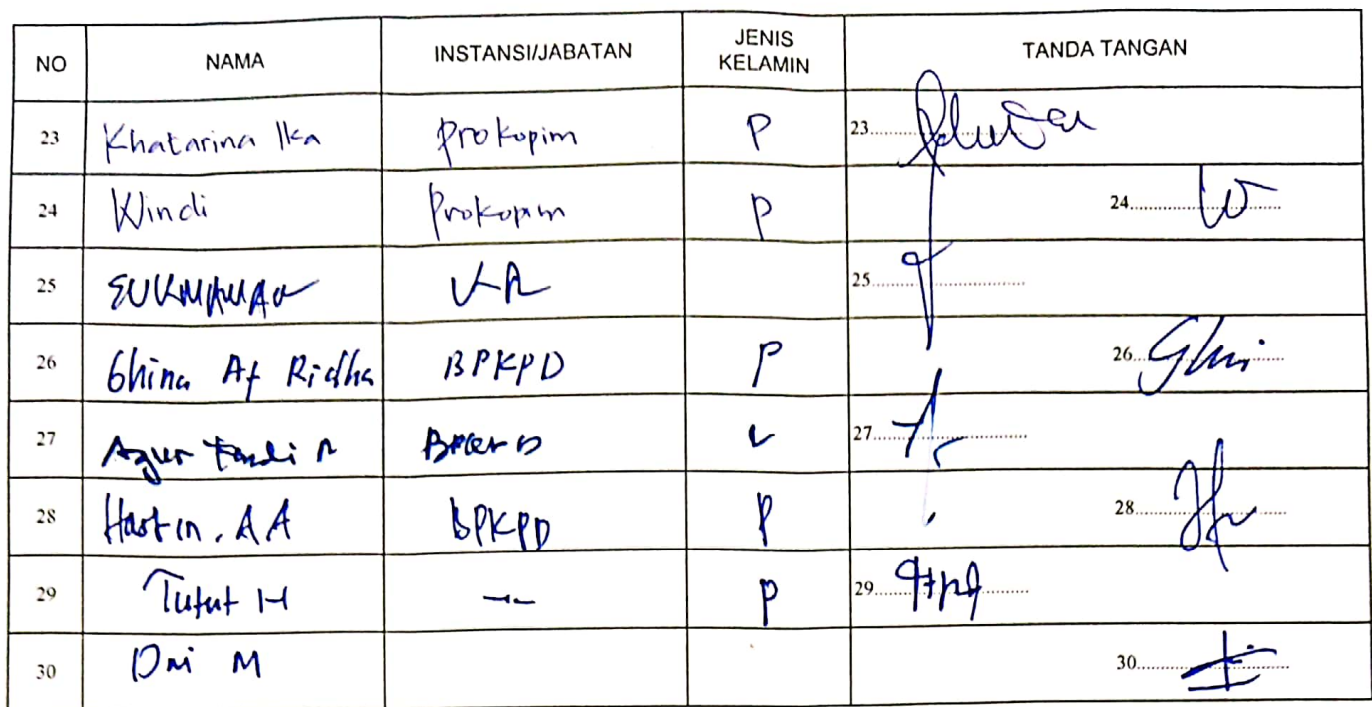 NO NAMA INSTANSI/JABATAN JENIS KELAMIN TANDA TANGAN
23 Khatarina Ika Prokopim P 23
24 Windi Prokopim P 24
25 25
26 Ghina Af Ridha BPKPD P 26 Ghi
27 Agus 27
28 Hastin. A A BPKPD P 28
29 Tutut H P 29
30 M 30